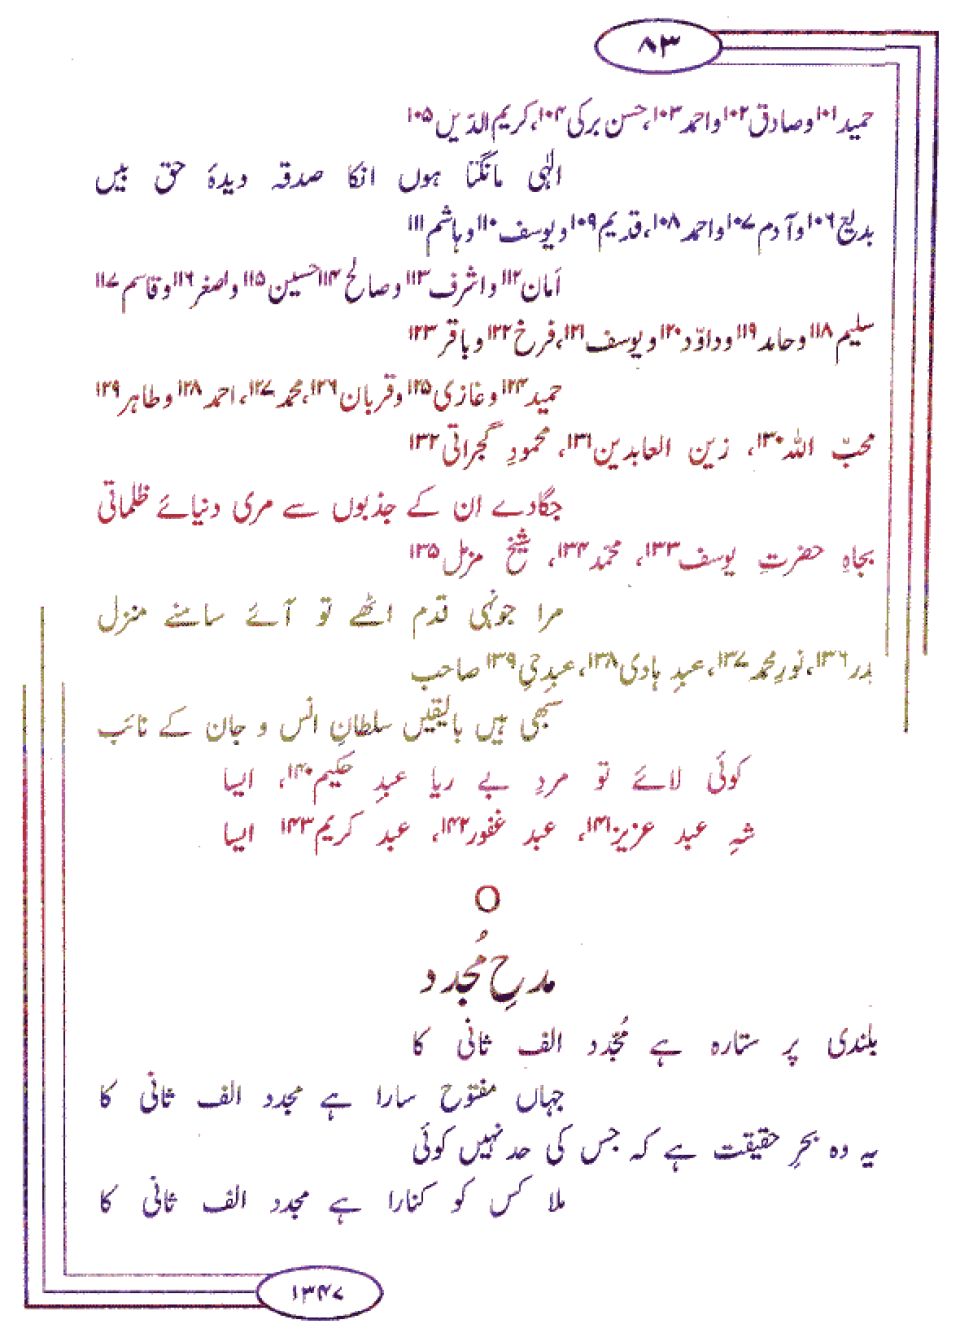 ۸۳
حمید۱۰۱ و صادق۱۰۲ و احمد۱۰۳، حسن برکی۱۰۴، کریم الدّیں۱۰۵
الٰہی مانگتا ہوں انکا صدقہ دیدۂ حق بیں
بدیع۱۰۶ و آدم۱۰۷ و احمد۱۰۸، قدیم۱۰۹ و یوسف۱۱۰ و ہاشم۱۱۱
اَمان۱۱۲ و اشرف۱۱۳ و صالح۱۱۴ حسین۱۱۵ و اصغر۱۱۶ و قاسم۱۱۷
سلیم۱۱۸ و حامد۱۱۹ و داوّد۱۲۰ و یوسف۱۲۱، فرخ۱۲۲ و باقر۱۲۳
حمید۱۲۴ و غازی۱۲۵ و قربان۱۲۶، محمد۱۲۷، احمد۱۲۸ و طاہر۱۲۹
محبّ اللہ۱۳۰، زین العابدین۱۳۱، محمودِ گجراتی۱۳۲
جگادے ان کے جذبوں سے مری دنیائے ظلماتی
بجاہِ حضرتِ یوسف۱۳۳، محمّد۱۳۴، شیخ مزمل۱۳۵
مرا جونہی قدم اٹھے تو آئے سامنے منزل
بدر۱۳۶، نورِ محمد۱۳۷، عبدِ ہادی۱۳۸، عبدِ حیِ۱۳۹ صاحب
سبھی ہیں بالیقیں سلطانِ انس و جان کے نائب
کوئی لائے تو مردِ بے ریا عبدِ حکیم۱۴۰، ایسا
شہِ عبد عزیز۱۴۱، عبد غفور۱۴۲، عبد کریم۱۴۳ ایسا
O
مدحِ مُجدد
بلندی پر ستارہ ہے مُجدّد الف ثانی کا
جہاں مفتوح سارا ہے مجدد الف ثانی کا
یہ وہ بحرِ حقیقت ہے کہ جس کی حد نہیں کوئی
ملا کس کو کنارا ہے مجدد الف ثانی کا
۱۳۴۷